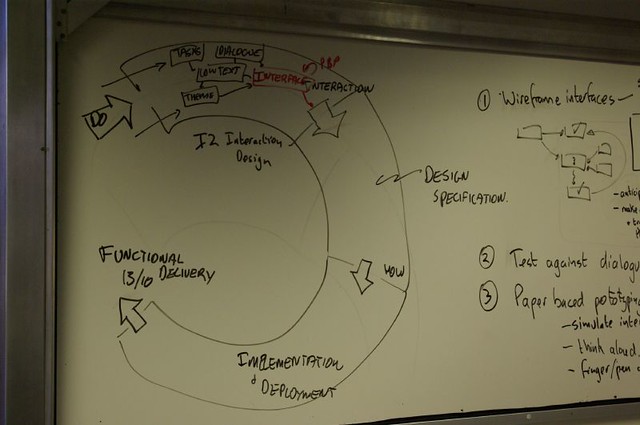 TASKS
DIALOGUE
PBP
CONTEXT
INTERFACE
INTERACTION
THEME
DO
I2 Interaction
Design
DESIGN
SPECIFICATION.
FUNCTIONAL
13/10 DELIVERY
WOW
IMPLEMENTATION
& DEPLOYMENT
① Wireframe interfaces –
② Test against dialogu
③ Paper based pototyping
– simulate inte
– think aloud
– finger/pen